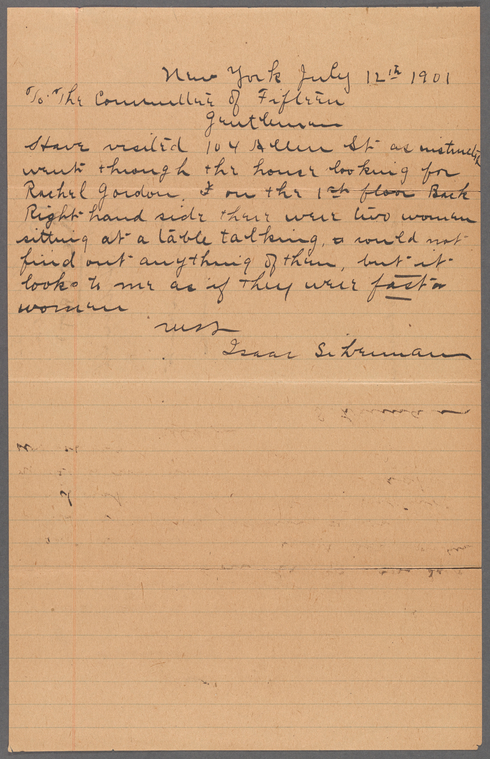 New York July 12th 1901
To The Committee of Fifteen
Gentlemen
Have visited 104 Allen St as instructed
went through the house looking for
Rachel Gordon, & on the 1st floor Back
Right hand side there were two women
sitting at a table talking, could not
find out anything of them, but it
looks to me as if they were fast
women
Isaac Silverman